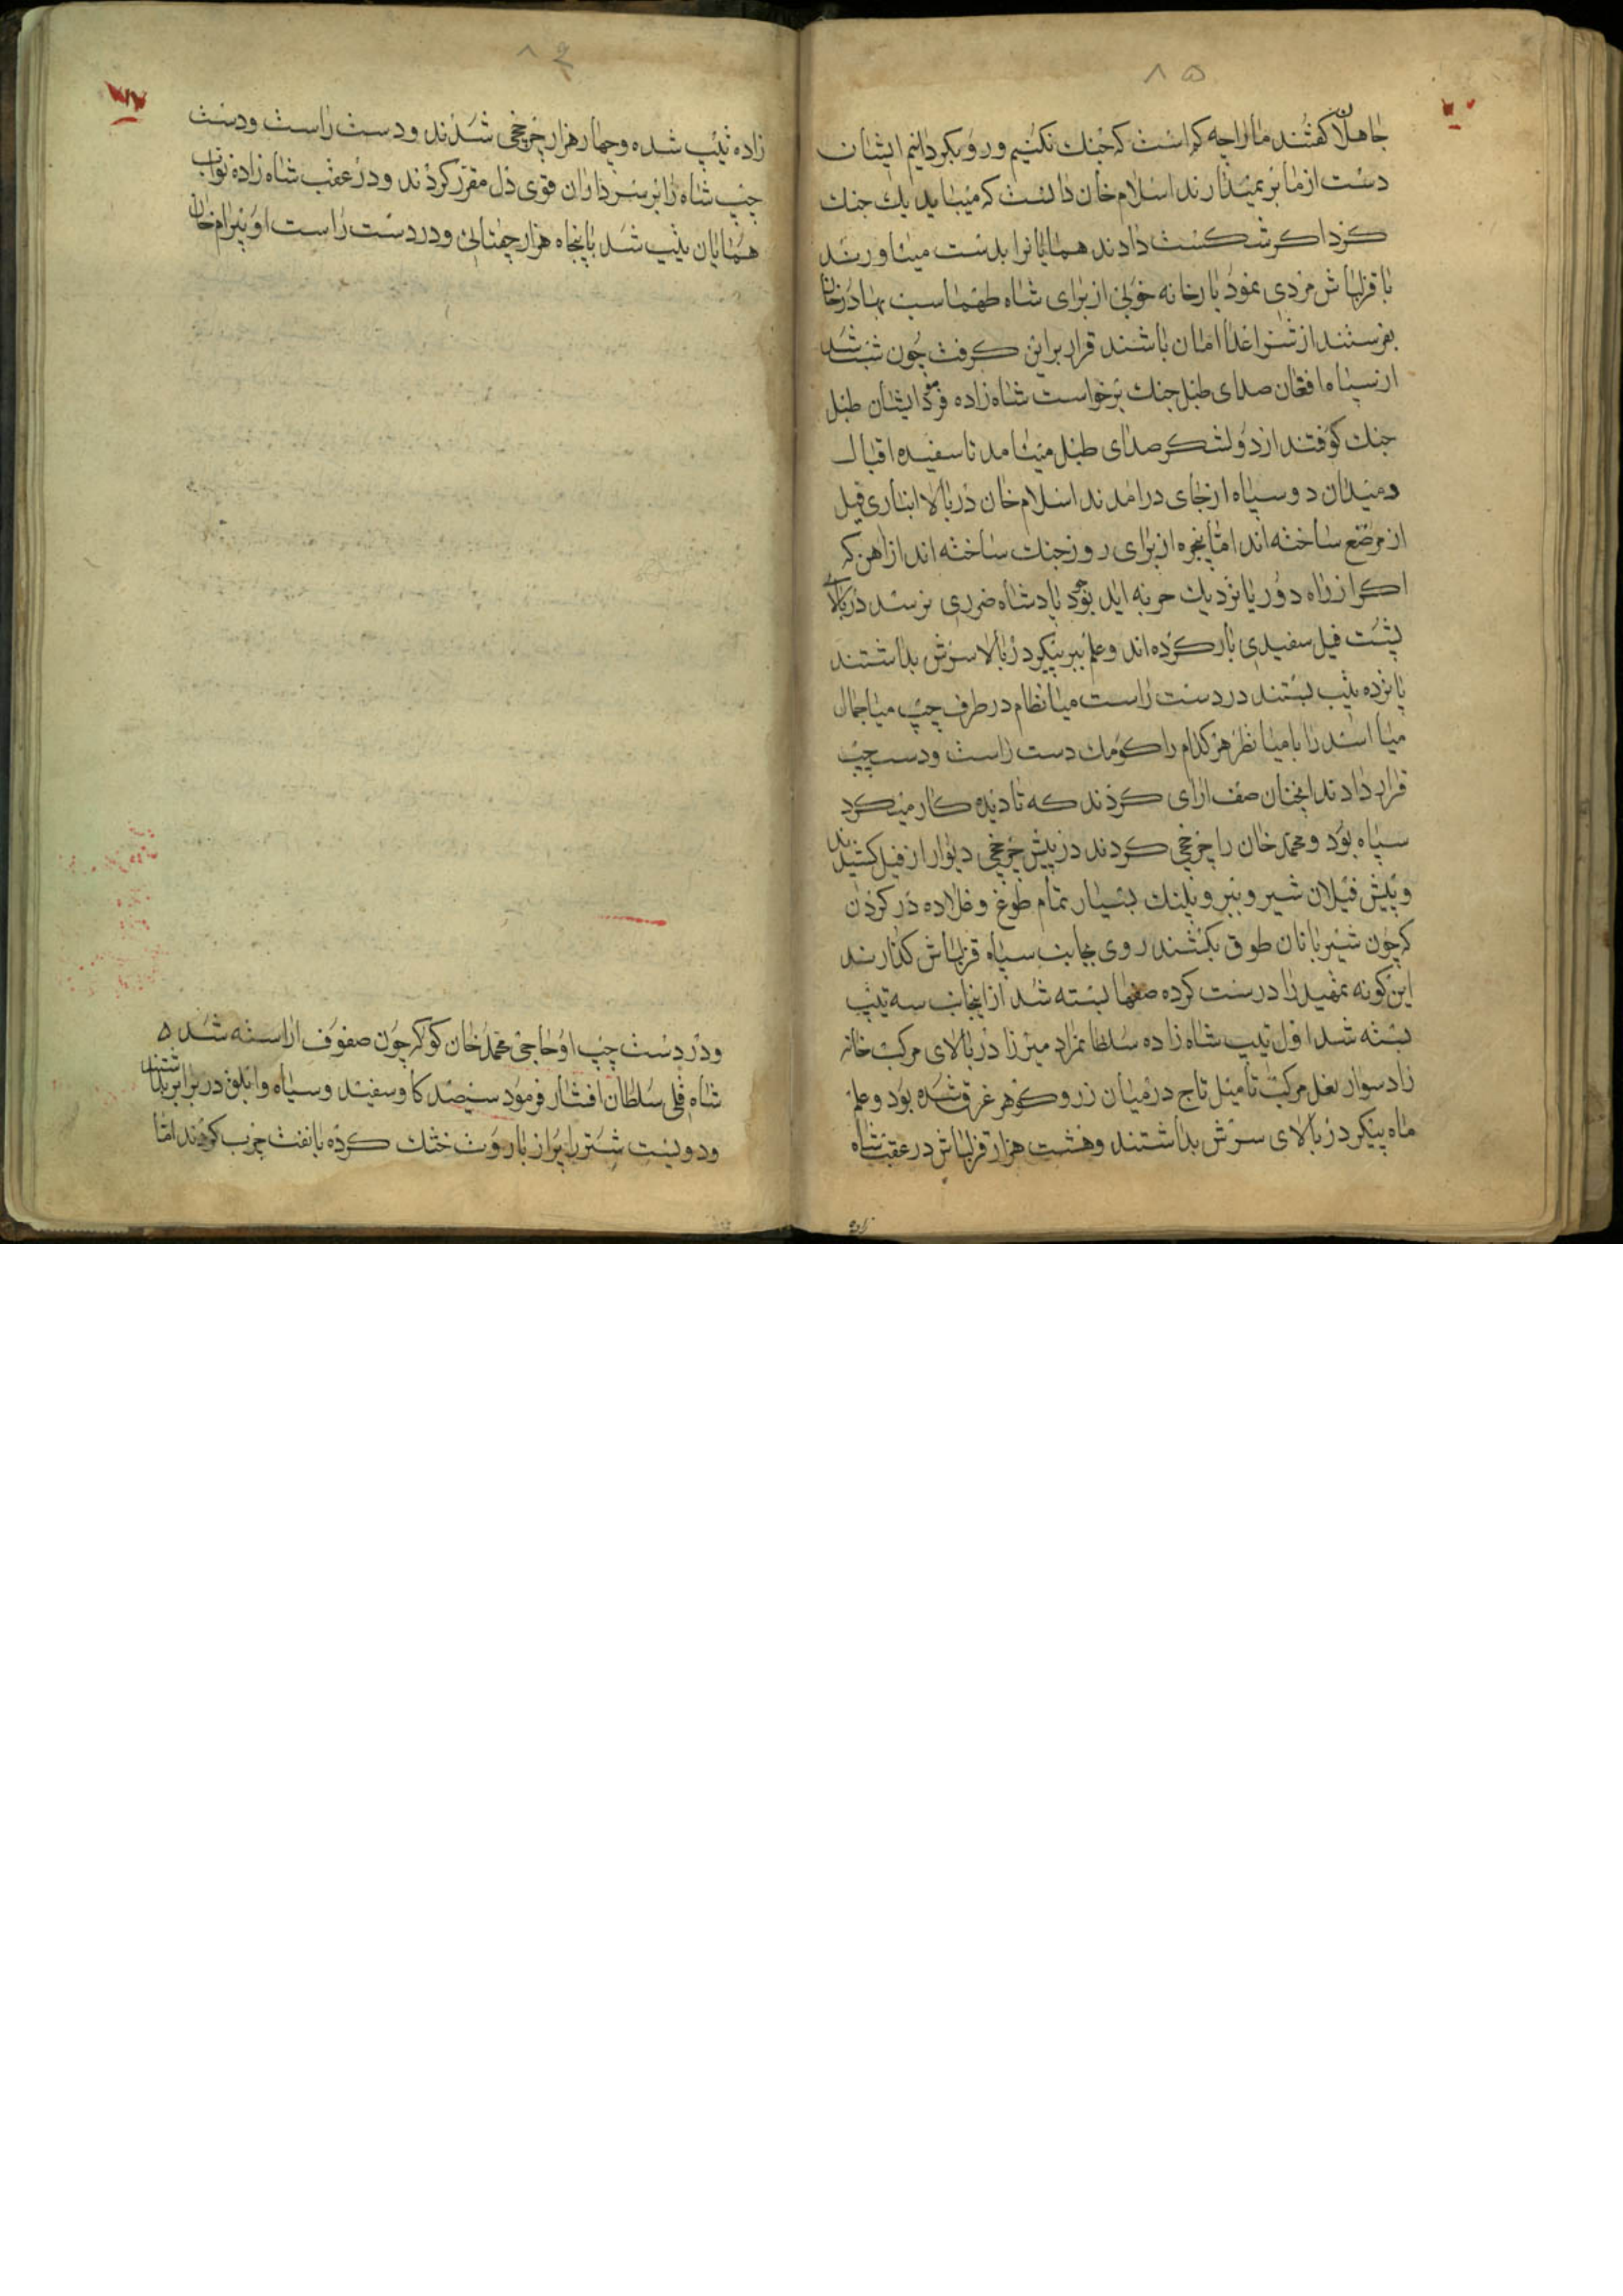 ۸۵
جاهلان کفتند ما را چه کراست که جنك نکنیم و رو بکردانیم ایشان
دست از ما بر نمیدارند اسلام خان دانست که میباید یك جنك
کرد اکر شکست دادند همایانرا بدست میاورند
با قزلباش مردی نمود بارخانه خوبی از برای شاه طهماسب بهادرخان
بفرستند از شر اعدا امان باشند قرار براین کرفت چون شب شد
از سپاه افغان صدای طبل جنك برخواست شاه زاده فرمود ایشان طبل
جنك کوفتند از دو لشکر صدای طبل میامد تا سفیده اقبال
دمیدان دو سپاه از جای درامدند اسلام خان در بالا انباری فیل
از مرصع ساخته اند اما پنجره از برای روز جنك ساخته اند از اهن که
اکر از راه دور یا نزدیك حربه اید بود پادشاه ضرری نرسد در بالای
پشت فیل سفیدی بار کرده اند و علم ببر پیکر در بالا سرش بداشتند
پانزده تیپ بستند در دست راست میا نظام در طرف چپ میا جمال
میا اسد را با میا نظر هر کدام را کومك دست راست و دست چپ
قرار دادند انچنان صف ارای کردند که تا دیده کار میکرد
سپاه بود و محمد خان را چرخچی کردند در پیش چرخچی دیوار از فیل کشیدند
و پیش فیلان شیر و ببر و پلنك بسیار تمام طوغ و قلاده در کردن
که چون شیربانان طوق بکشند روی بجانب سپاه قزلباش کذارند
این کونه تمهید را درست کرده صفها بسته شد از اینجانب سه تیپ
بسته شد اول تیپ شاه زاده سلطانمراد میرزا در بالای مرکب خانه
زاد سوار نعل مرکب تا میل تاج در میان زر و کوهر غرق شده بود و علم
ماه پیکر در بالای سرش بداشتند و هشت هزار قزلباش در عقب شاه
زاده
۸۶
زاده تیپ شده و چهار هزار چرخچی شدند و دست راست و دست
چپ شاه را بر سرداران قوی دل مقرر کردند و در عقب شاه زاده نواب
همایان تیپ شد با پنجاه هزار چغتائی و در دست راست او بیرام خان
و در دست چپ او حاجی محمد خان کوکه چون صفوف اراسته شد ه
شاه قلی سلطان افشار فرمود سیصد کا و سفید و سیاه و ابلق در برابر بداشتند
و دویست شتر را پر از باروت خشك کرده با نفت چرب کردند اما